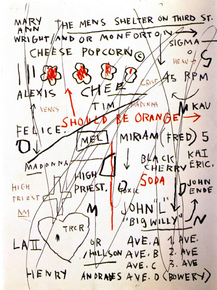 MARY ANN THE MENS SHELTER ON THIRD ST.
WRIGHT AND OR MONFORTON
SIGMA
CHEESE POPCORN ©
CHEE
45 RPM
ALEXIS
VENUS
TIM
MADONNA
KAV
SHOULD BE ORANGE
FELICE.
MEL
MIRIAM (FRED) 5
MADONNA
BLACK CHERRY SODA
KAI ERIC
HIGH PRIEST.
HIGH PRIEST
JOHN ENDE
M
JOHN "L"
"BIG WILLY"
N
TRCR
LA II
OR
AVE. A 1. AVE
HILLSON AVE. B 2. AVE
AVE. C 3. AVE
HENRY ANDRADES AVE. D (BOWERY)